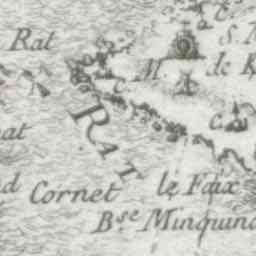 Rat
S. M
M. de K
C.
C.
RAT
at
d Cornet
le Faix
Bse Minquin